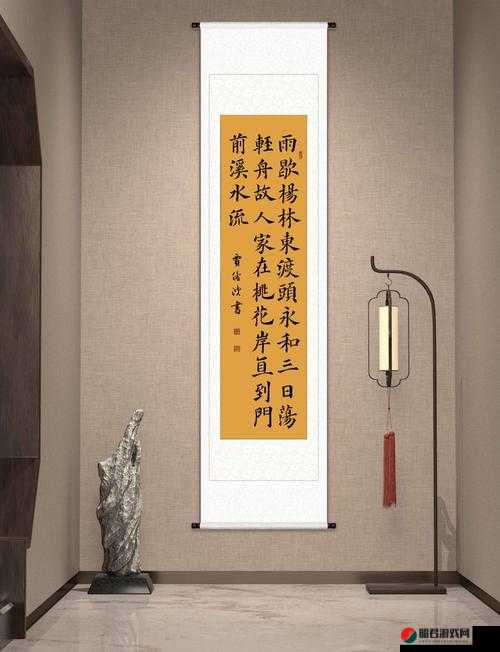 雨歇楊林東渡頭永和三日蕩
輕舟故人家在桃花岸直到門
前溪水流
書
君游戏网